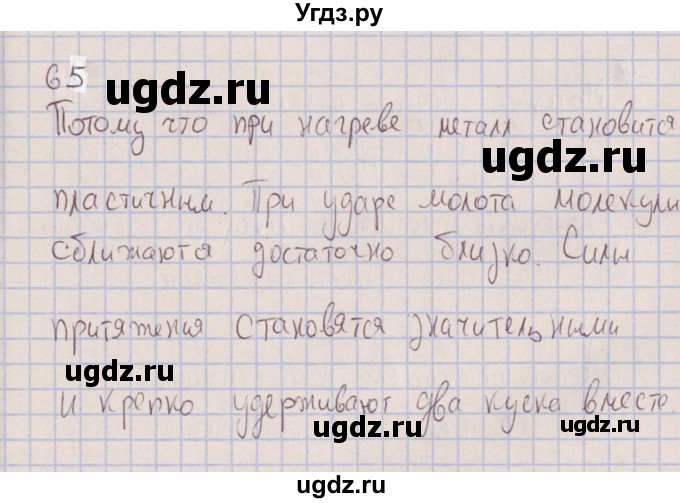 Угдз.ру
65
ugdz.ru
Потому что при нагреве металл становится
ugdz.ru
пластичным. При ударе молота молекули
сближаются достаточно близко. Силы
притяжения становятся значительными
ugdz.ru
и крепко удерживают два куска вместе.
ugdz.ru
ugdz.ru
ugdz.ru